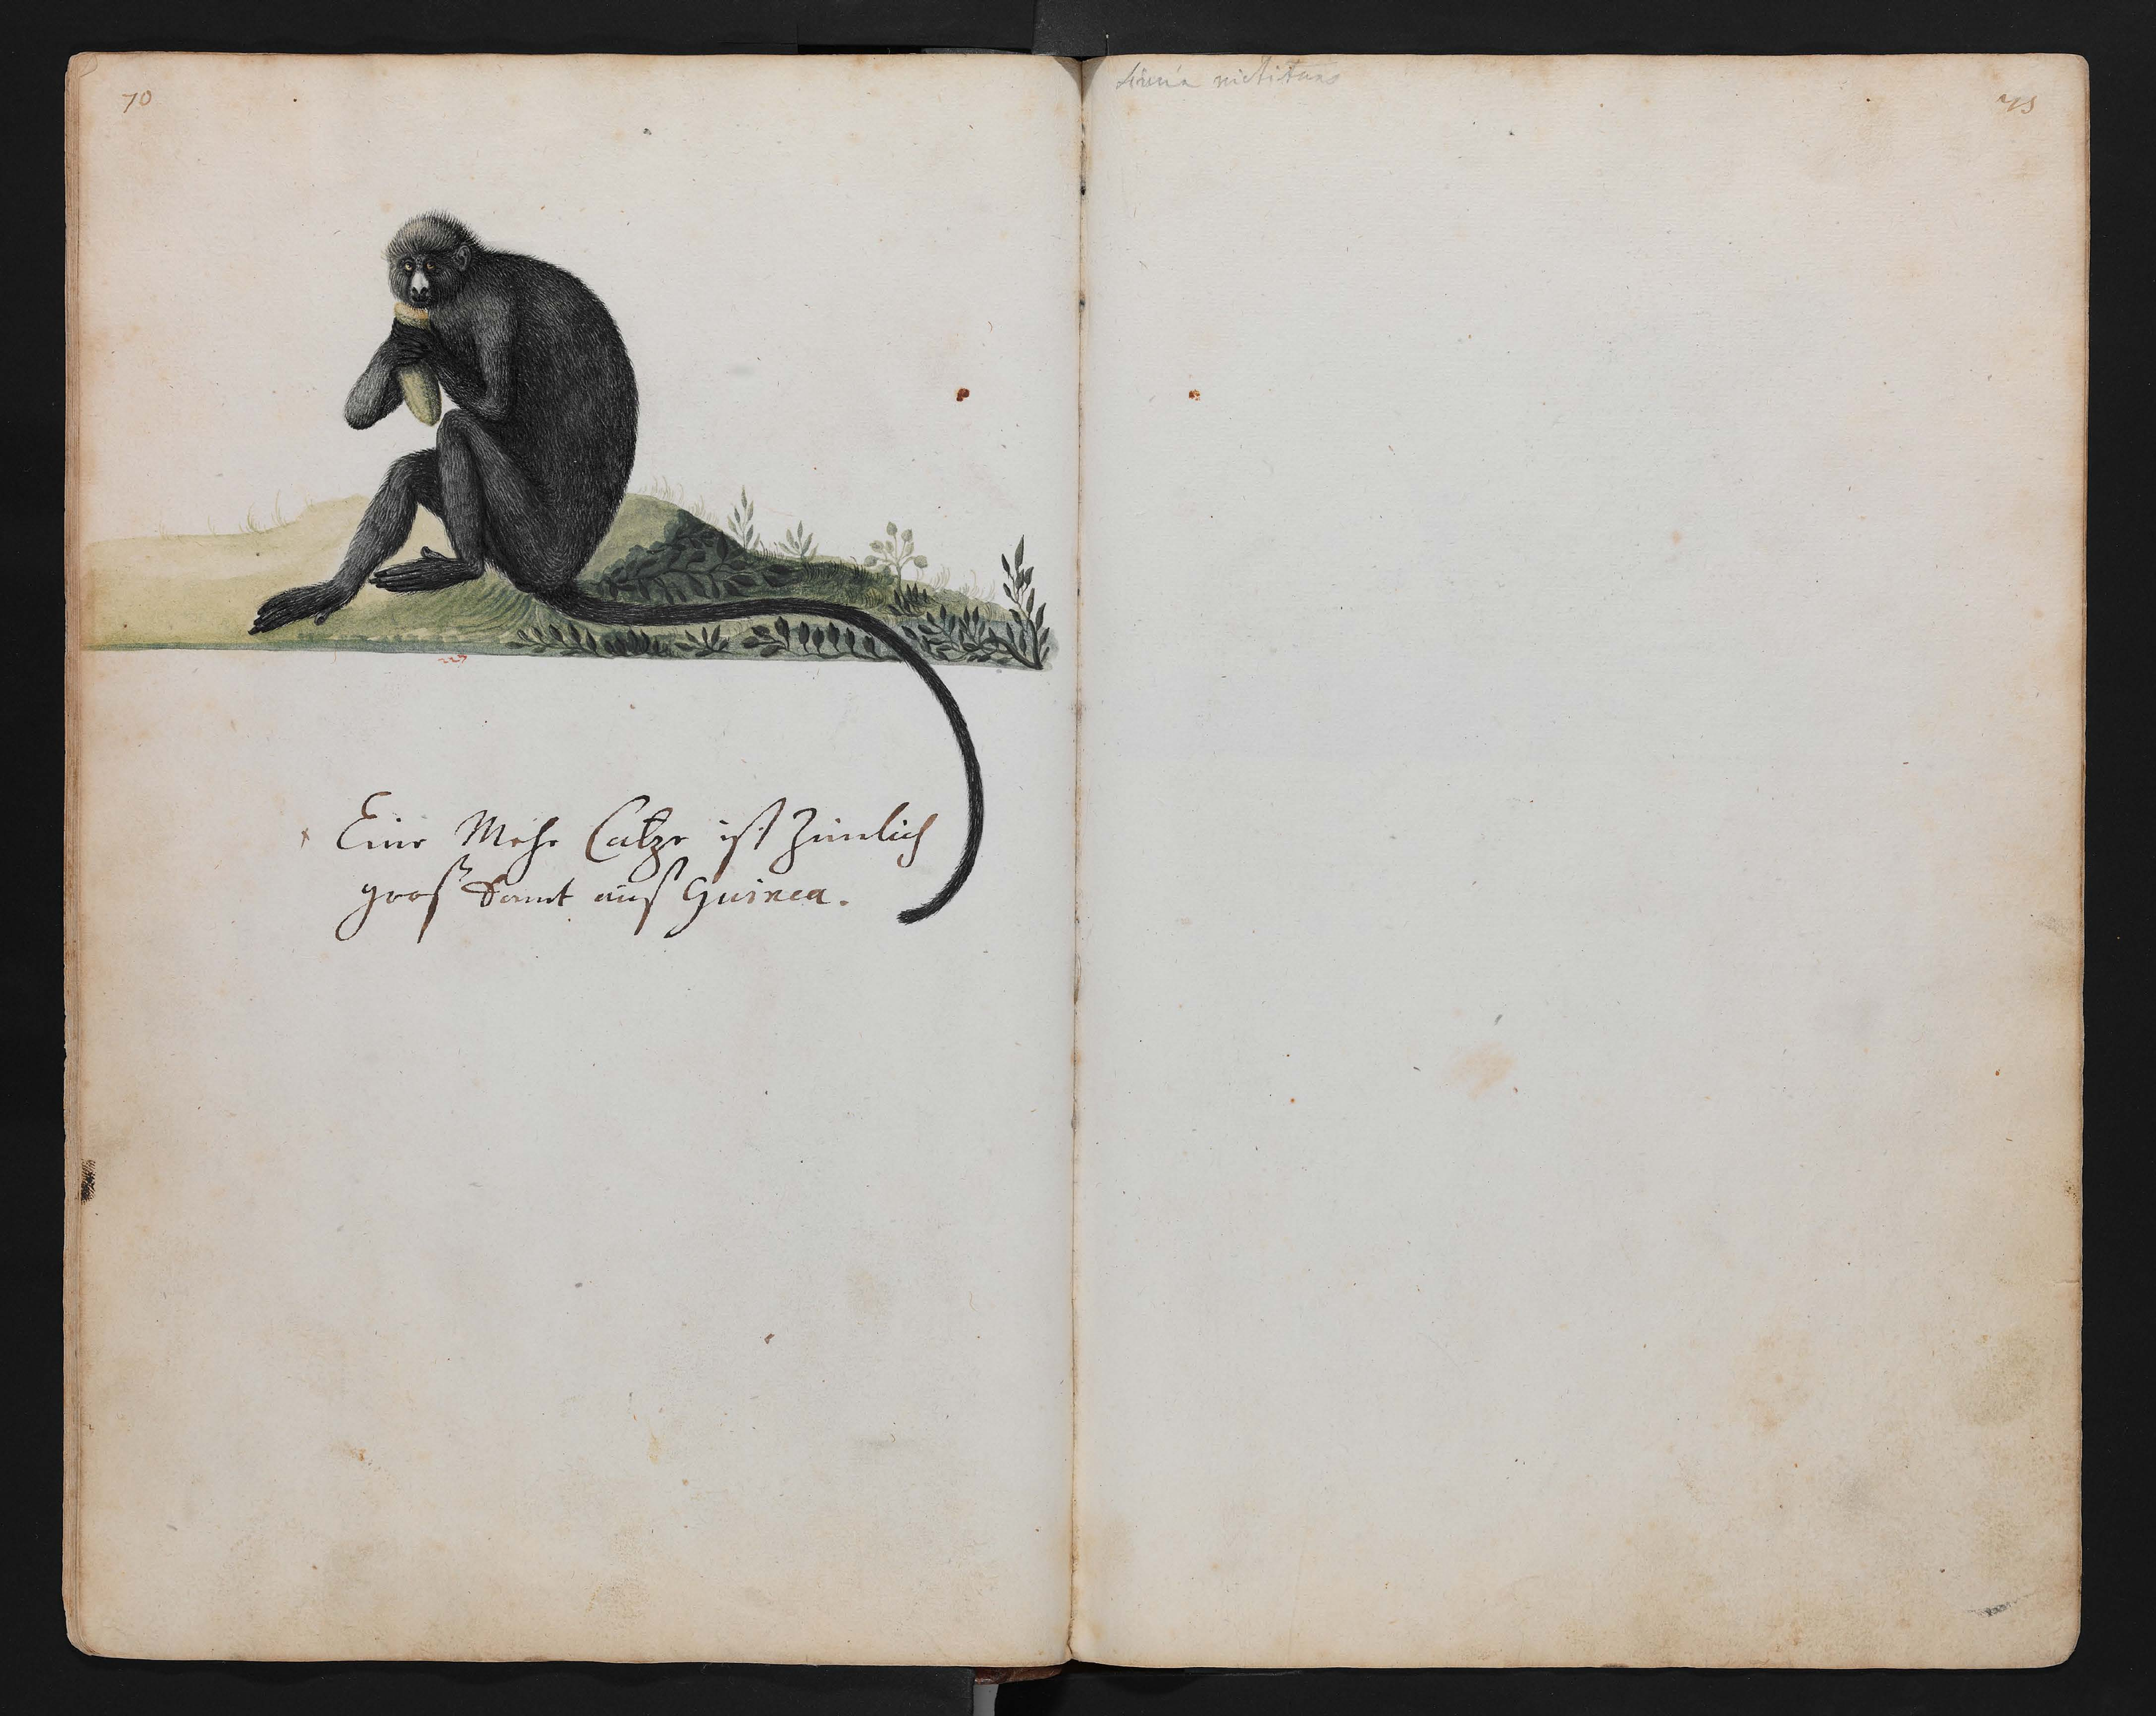 70
Eine Mehr Catze ist Zimlich
groß Komt auß Guinea.
Simia nictitans